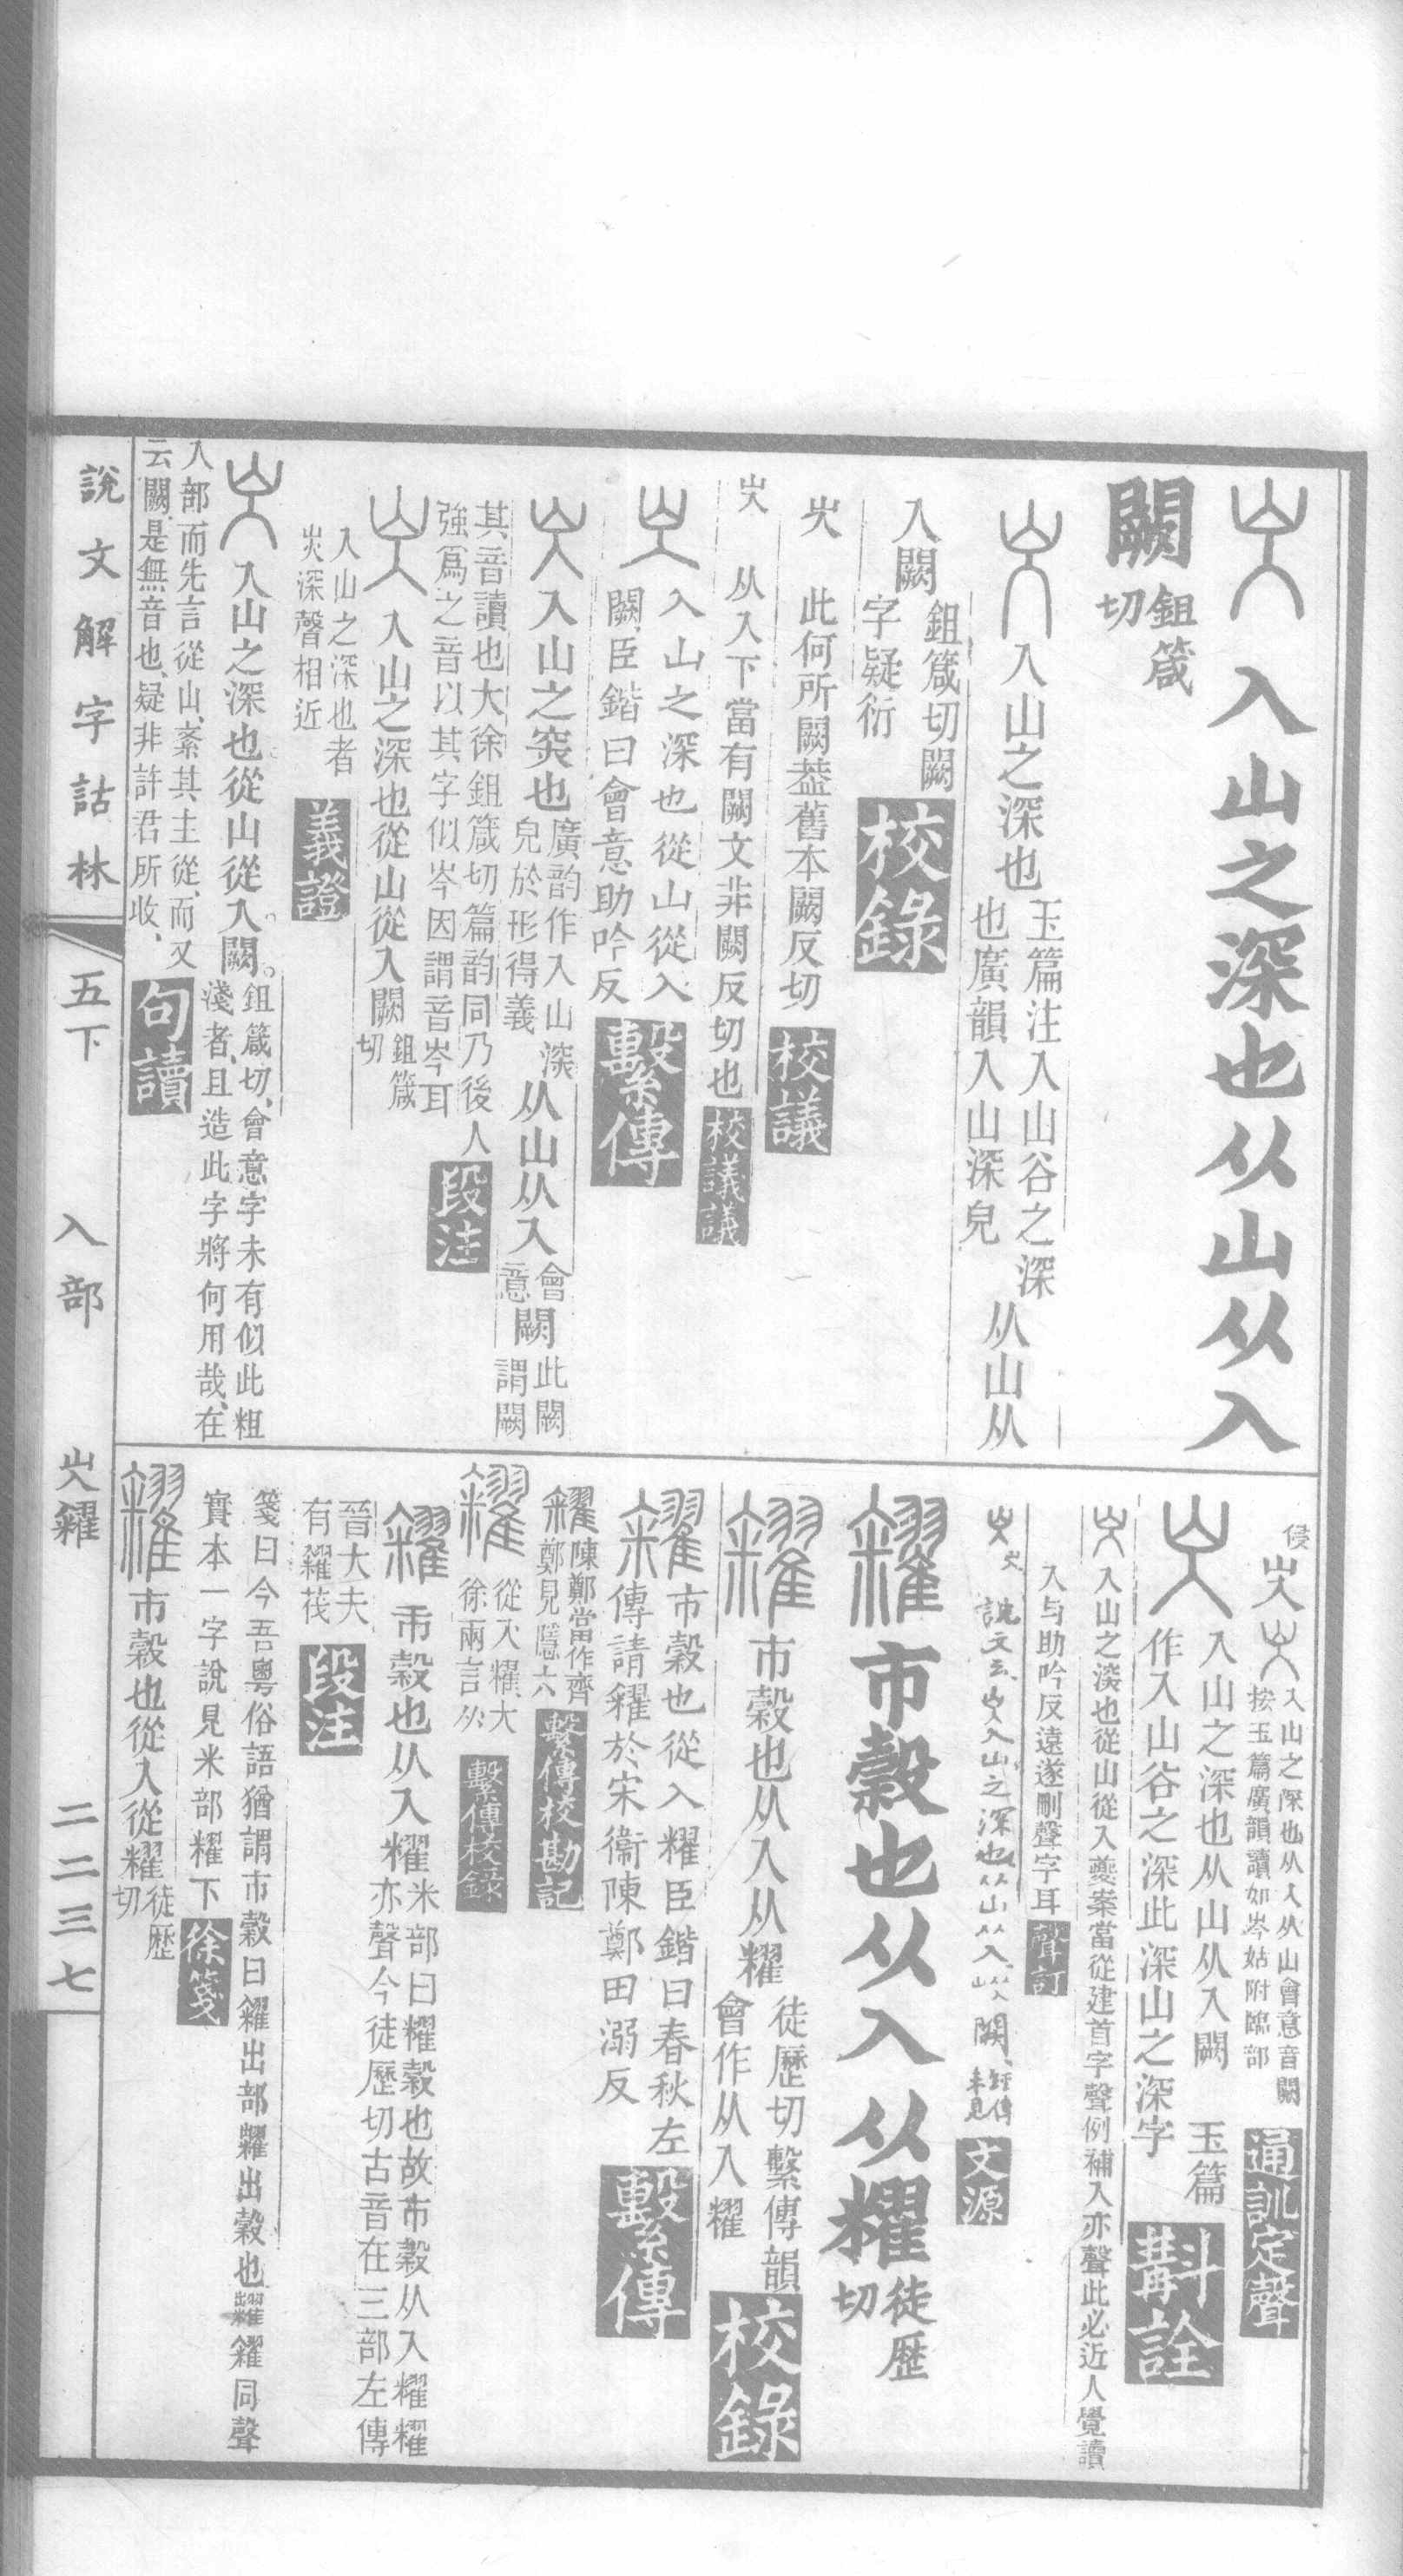 入山之深也从山从入
闕鉏箴切
入山之深也玉篇注入山谷之深也廣韻入山深皃从山从
入闕鉏箴切闕字疑衍校錄
屳此何所闕葢舊本闕反切校議
屳从入下當有闕文非闕反切也校議議
入山之深也從山從入闕臣鍇曰會意助吟反繫傳
入山之突也廣韵作入山深皃於形得義从山从入會意闕此闕謂闕
其音讀也大徐鉏箴切篇韵同乃後人強爲之音以其字似岑因謂音岑耳段注
入山之深也從山從入闕鉏箴切
入山之深也者屳深聲相近義證
入山之深也從山從入闕鉏箴切會意字未有似此粗淺者且造此字將何用哉在
入部而先言從山紊其主從而又云闕是無音也疑非許君所收句讀
說文解字詁林 五下 入部 屳糴 二二三七
侵屳入山之深也从入从山會意音闕按玉篇廣韻讀如岑姑附臨部通訓定聲
入山之深也从山从入闕玉篇作入山谷之深此深山之深字斠詮
入山之深也從山從入夔案當從建首字聲例補入亦聲此必近人覺讀
入与助吟反遠遂刪聲字耳聲訂
說文云屳入山之深也从山从入闕經傳未見文源
糴市穀也从入从䊮徒歷切
市穀也从入从䊮徒歷切繫傳韻會作从入䊮校錄
市穀也從入䊮臣鍇曰春秋左傳請糴於宋衞陳鄭田溺反繫傳
糴陳鄭當作齊鄭見隱六繫傳校勘記
從入䊮大徐兩言从繫傳校錄
市穀也从入䊮米部曰䊮穀也故市穀从入䊮䊮亦聲今徒歷切古音在二部左傳
晉大夫有糴茷段注
箋曰今吾粵俗語猶謂市穀曰糴出部糶出穀也糶糴同聲
實本一字說見米部䊮下徐箋
市穀也從入從䊮徒歷切